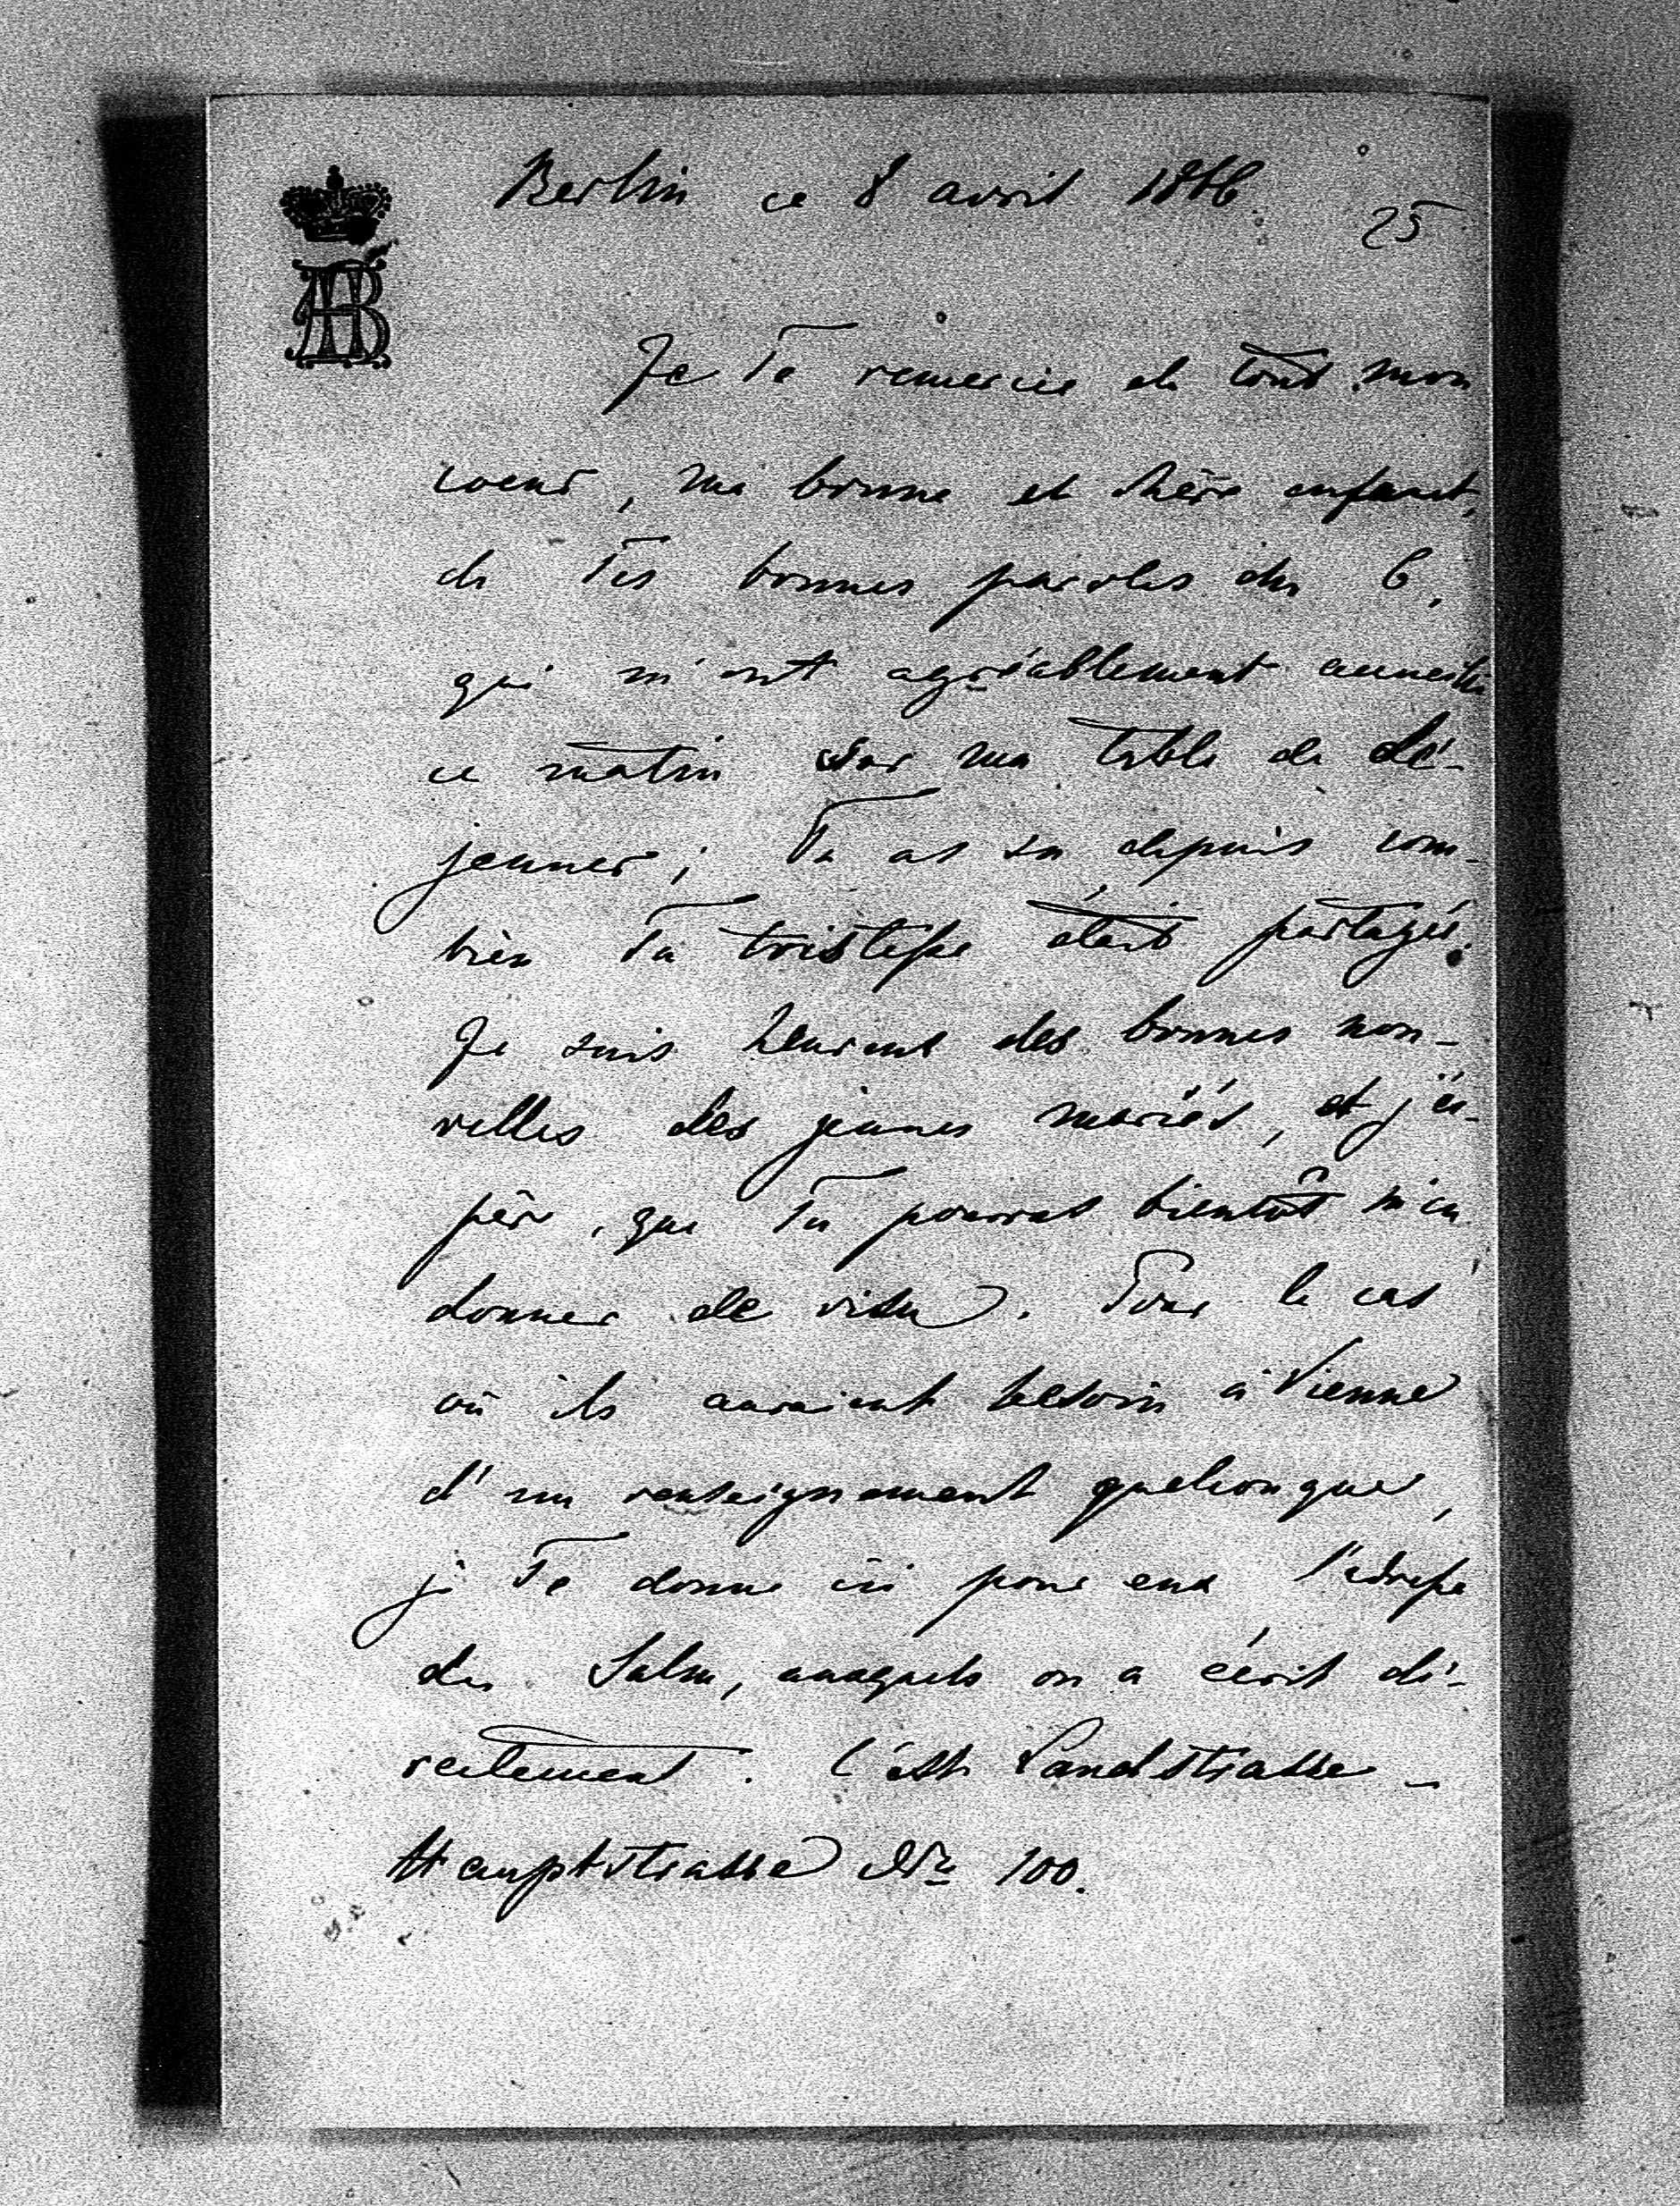 Berlin ce 8 avril 1866.
25
AB
Je Te remercie de tout mon
coeur, ma bonne et chère enfant,
de Tes bonnes paroles du 6,
qui m'ont agréablement accueilli
ce matin sur ma table de dé-
jeuner; Tu as su depuis com-
bien Ta tristesse était partagée.
Je suis heureux des bonnes nou-
velles des jeunes mariés, et j'es-
père, que Tu pourras bientôt m'en
donner de visu. Pour le cas
où ils auraient besoin à Vienne
d'un renseignement quelconque,
je Te donne ici pour eux l'adresse
des Salm, auxquels on a écrit di-
rectement. C'est Landstrasse -
Hauptstrasse No 100.